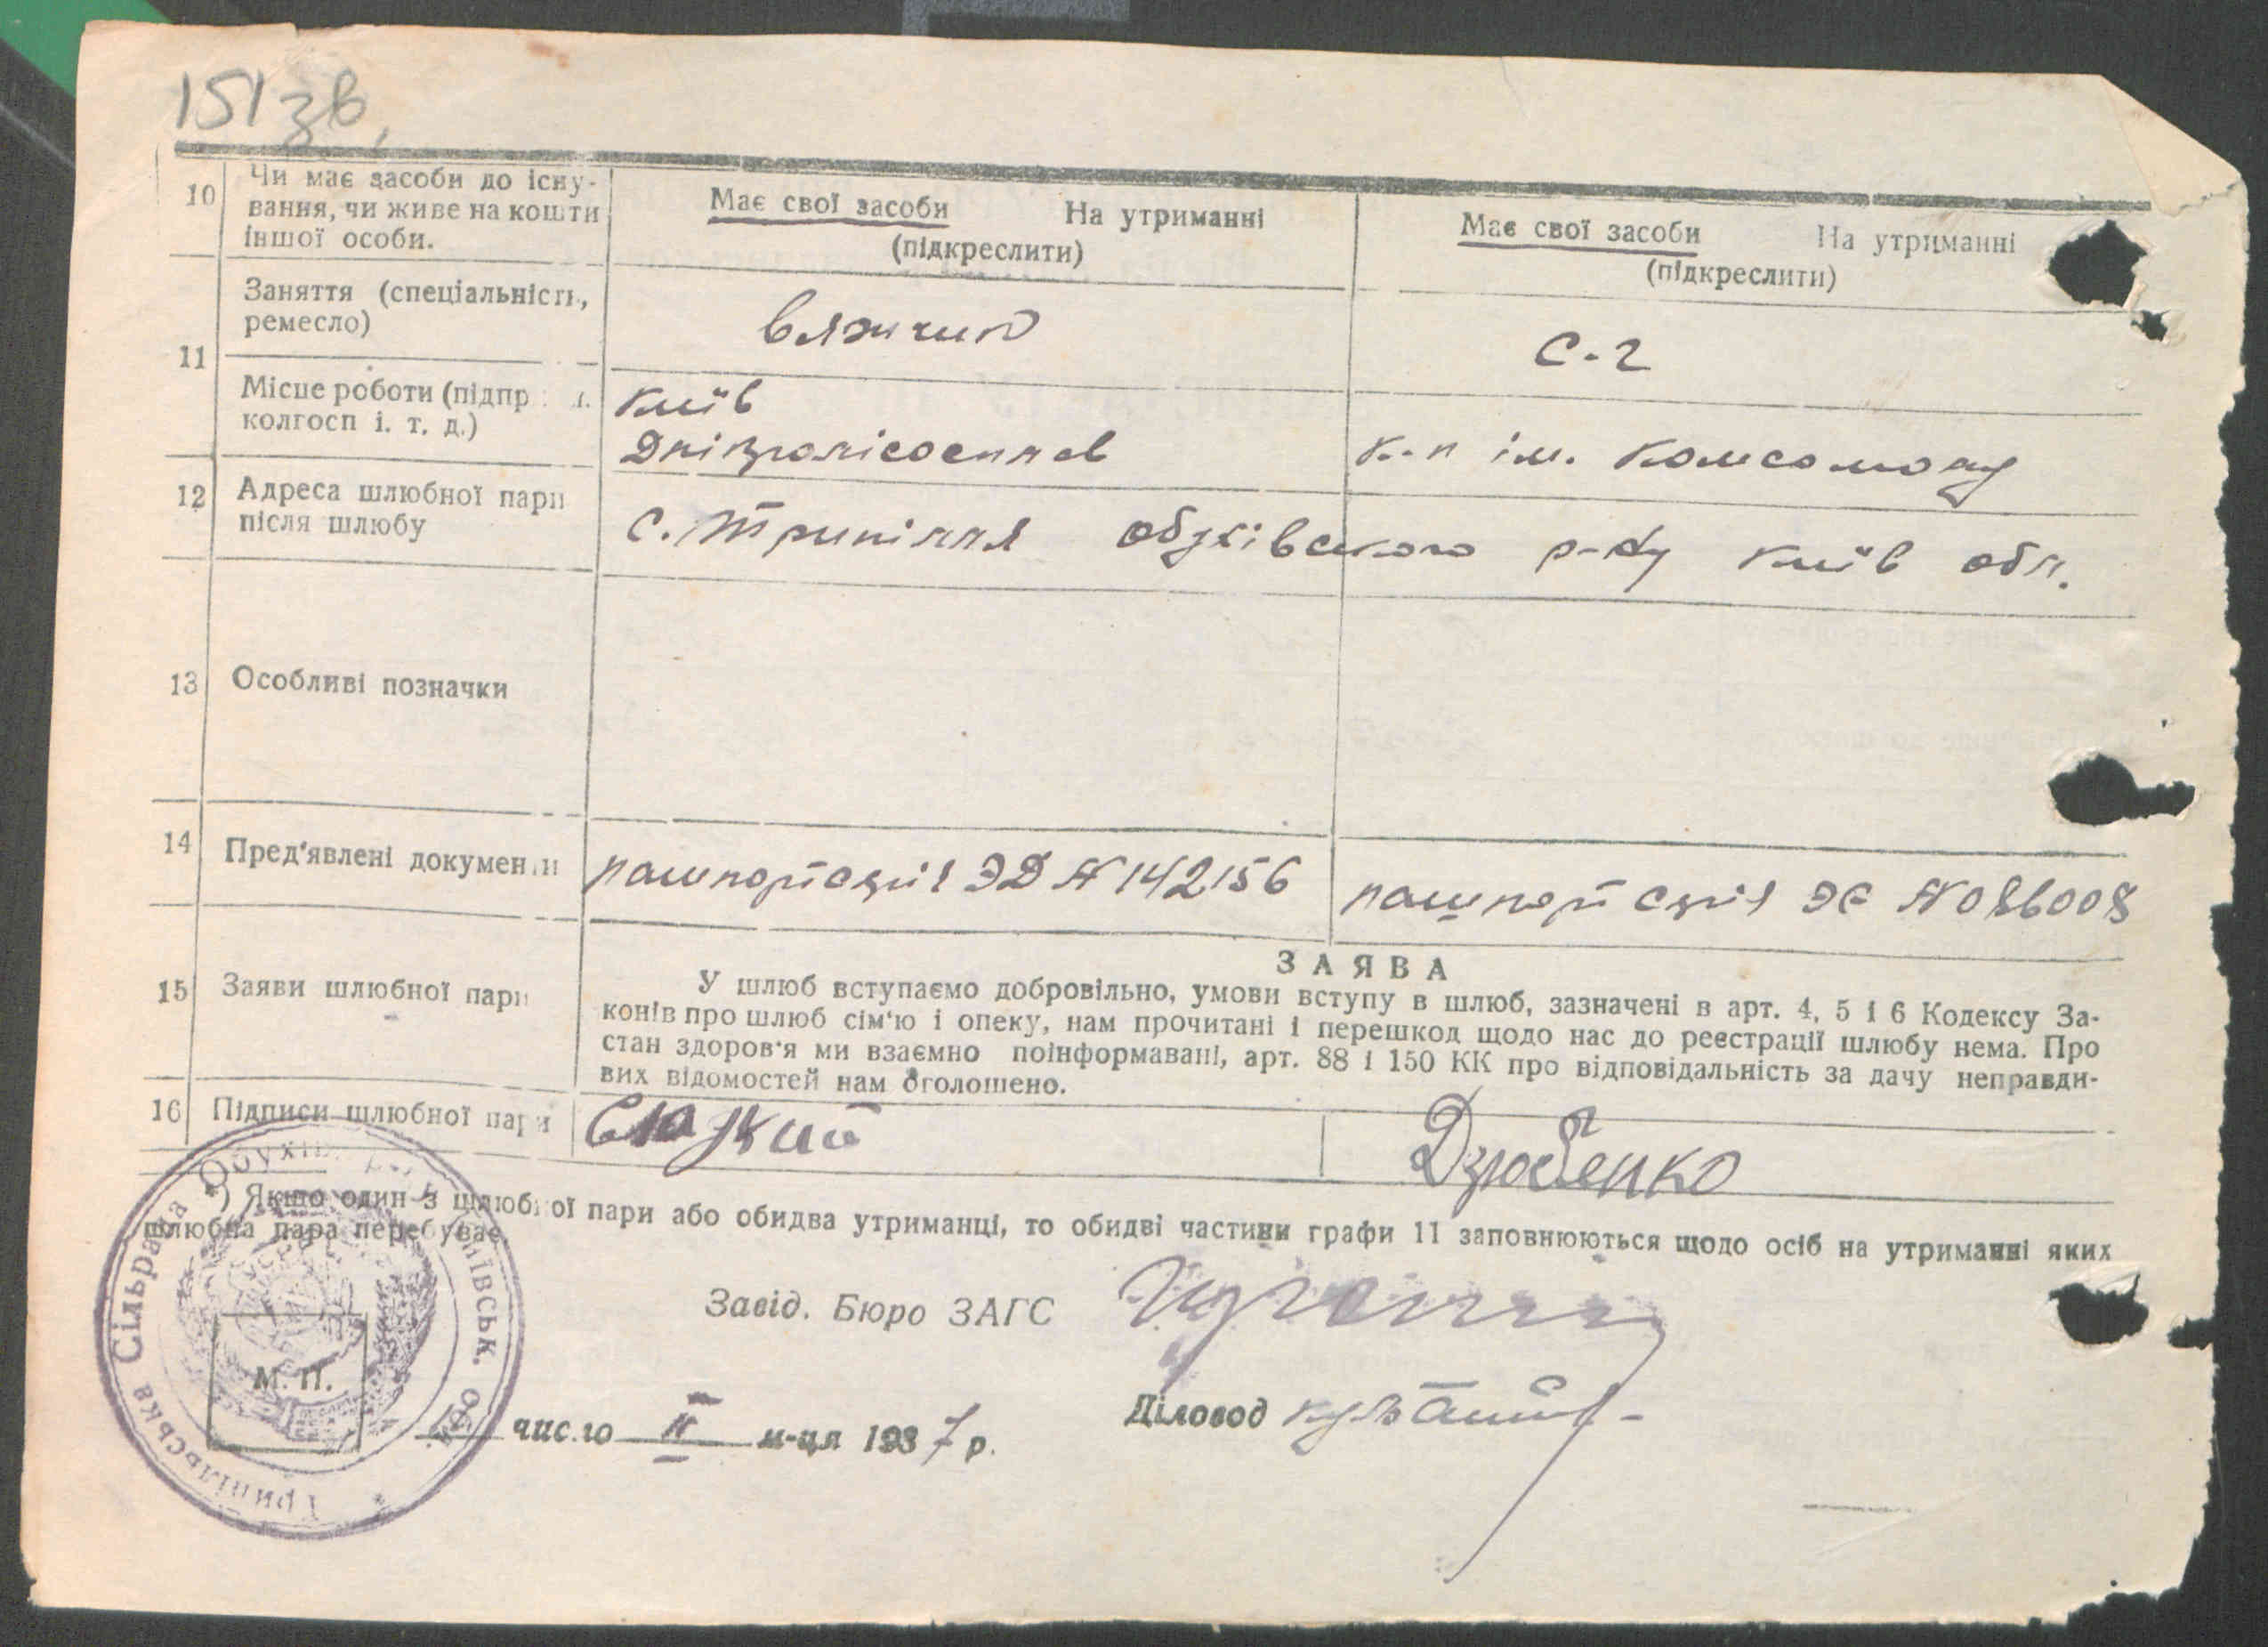 151 зв.
10 Чи має засоби до існу-
вання, чи живе на кошти
іншої особи.
Має свої засоби На утриманні
(підкреслити)
Має свої засоби На утриманні
(підкреслити)
11 Заняття (спеціальність,
ремесло)
вяжчик
С-г
Місце роботи (підпр
колгосп і. т. д.)
Київ
к-п ім. Комсомолу
12 Адреса шлюбної пари
після шлюбу
с. Трипілля Обухівського р-ну Київ обл.
13 Особливі позначки
14 Пред'явлені документи
пашпорт серія ЭД № 142156
пашпорт серія ЭЄ № 086008
15 Заяви шлюбної пари
ЗАЯВА
У шлюб вступаємо добровільно, умови вступу в шлюб, зазначені в арт. 4, 5 і 6 Кодексу За-
конів про шлюб сім'ю і опеку, нам прочитані і перешкод щодо нас до реєстрації шлюбу нема. Про
стан здоров'я ми взаємно поінформавані, арт. 88 і 150 КК про відповідальність за дачу неправди-
вих відомостей нам оголошено.
16 Підписи шлюбної пари
Дзюбенко
*) Якщо один з шлюбної пари або обидва утриманці, то обидві частини графи 11 заповнюються щодо осіб на утриманні яких
шлюбна пара перебуває.
Завід. Бюро ЗАГС
Діловод
М. П.
число II м-ця 1937 р.
Трипільська Сільрада Обухів